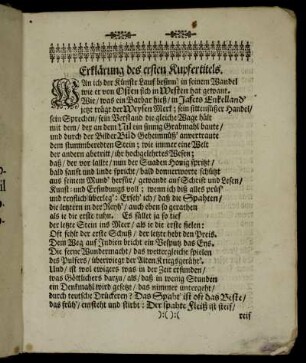 Erklärung des ersten Kupfertitels.
WAnn ich der Künste Lauf besinn' in seinen Wandel
wie er von Osten sich in Westen hat gewant.
Wie, was ein Barbar hieß, in Jafets Enkelland'
jetzt trägt der Weysen Nert; sein sittensüßer Handel/
sein Sprechen, sein Verstand die gleiche Wage hält
mit dem, der an dem Nil ein sinnig Grabmahl baute/
und durch der Bilder Bild Geheimnüß' anvertraute
dem stummberedten Stein; wie immer eine Welt
der andern abersit, ihr hochgelehrtes Wesen;
daß, der vor lallte, nun der Suaden Honig spritzt/
bald sanft und linde spricht/ bald donnerworte schützt
aus seinem Mund' herfür, gewant auf Schrift und Lesen/
Kunst und Erfindungs voll; wenn ich diß alles prüf'
und treulich überleg': Erseh' ich/ daß die Spahten/
die letzten in der Reyh'/ auch eben so gerathen
als je die erste nahm. Es fället ja so tief
der letzte Stein ins Meer/ als je die erste fielen:
Oft fehlt der erste Schuß/ der letzte hebt den Preis.
Dem Weg auf Indien bricht ein Vesputz das Eys.
Die ferne Wundermacht/ das wettergleiche spielen
des Pulfers/ überwiegt der Alten Kriegsgeräth'.
Und/ ist wol ewigers was in der Zeit erfunden/
was Göttlichers darzu/ als/ daß in wenig Stunden
ein Denkmahl wird gesetzt/ das nimmer untergeht/
durch teutsche Drückerey? Das Spaht' ist oft das Beste/
das früh'/ entsteht und stirbt: Der spahte Fleiß ist steif/
):( ):( reif